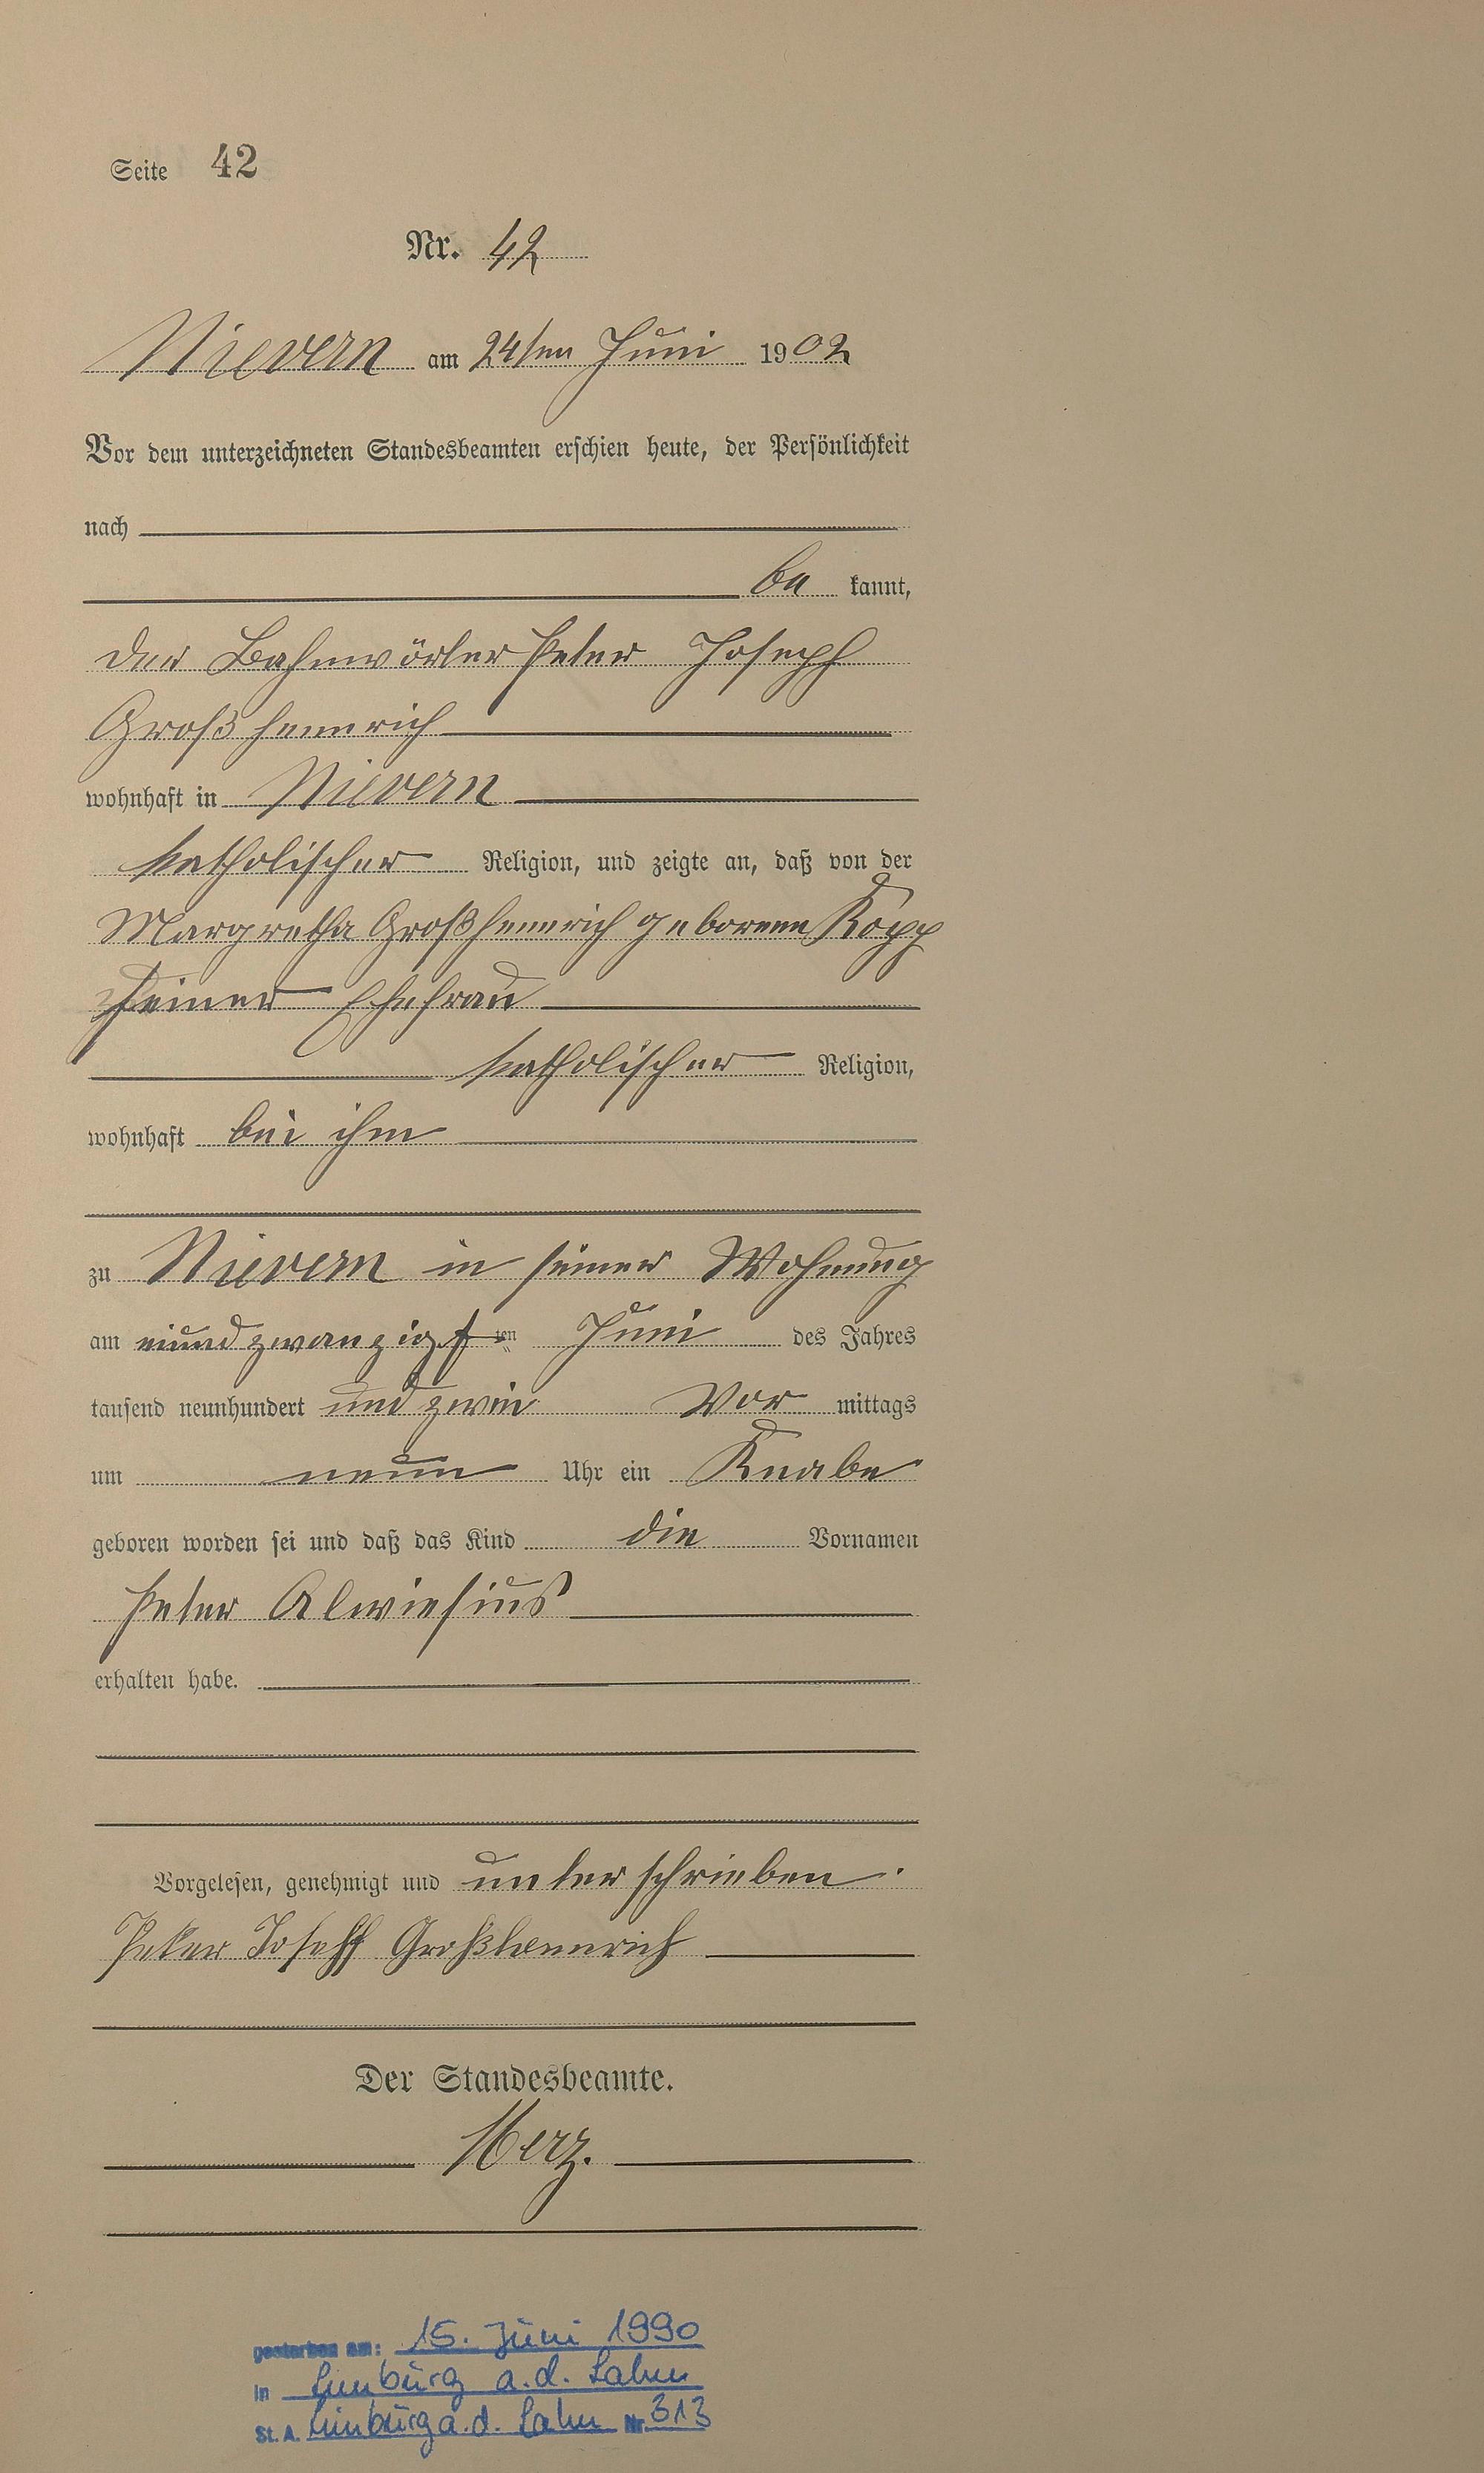 Seite 42
Nr. 42
Nievern am 24ten Juni 1902
Vor dem unterzeichneten Standesbeamten erschien heute, der Persönlichkeit
nach
be kannt,
der Bahnwörter Peter Joseph
Großhennrich
wohnhaft in Nievern
katholischer Religion, und zeigte an, daß von der
Margretha Großhennrich geborene Kopp
seiner Ehefrau
katholischer Religion,
wohnhaft bei ihm
zu Nievern in seiner Wohnung
am zwanzigsten Juni des Jahres
tausend neunhundert und zwei Vor mittags
um neun Uhr ein Knabe
geboren worden sei und daß das Kind die Vornamen
Peter Alwiesius
erhalten habe.
Vorgelesen, genehmigt und unterschrieben.
Peter Joseff Großhennrich
Der Standesbeamte.
Merz.
gestorben am: 15. Juni 1990
in Limburg a.d. Lahn
St. A. Limburg a.d. Lahn Nr. 313